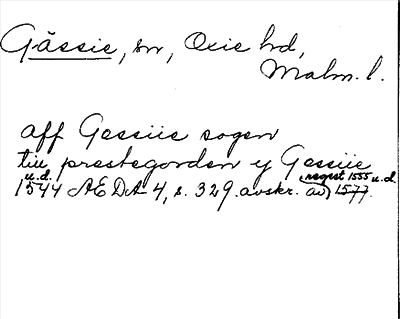 Gässie, sn, Oxie hd,
Malm. l.
aff Gessiie sogen
tiil prestegorden y Gessiie
u.d. regist 1555 u.d.
1544 AEDA 4, s. 329. avskr. av 1577.